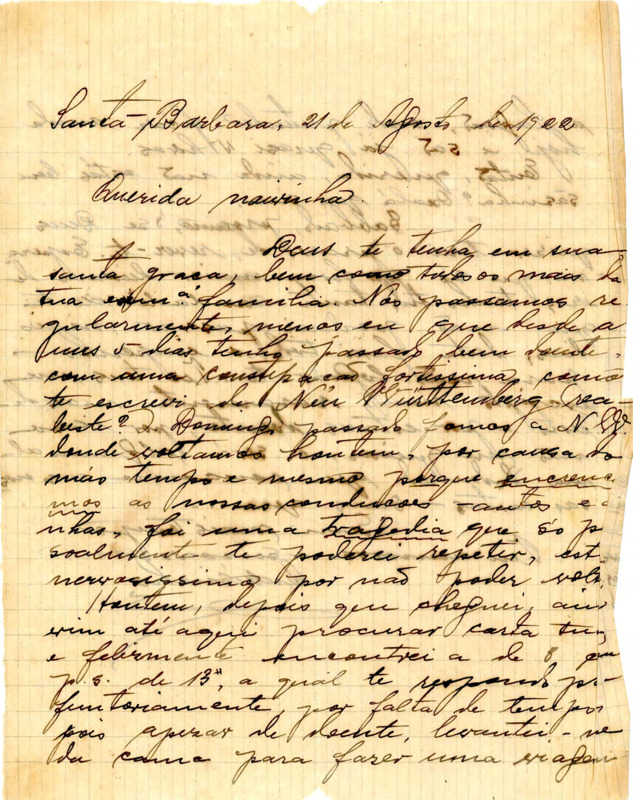 Santa Barbara, 21 de Agosto de 1922
Querida nairinha.
Deus te tenha em sua
santa graca, bem como todos os mais da
tua exmª familia. Nós passamos re
gularmente, menos eu que desde a
uns 5 dias tenho passado bem doente,
com uma constipação fortissima, como
te escrevi de Neu Württemberg, rece
beste? Domingo passado fomos a N. W.
donde voltamos hontem, por causa do
máo tempo e mesmo porque encrenca
mos as nossas conducoes - autos e a
nhas, foi uma tragedia que só p
soalmente te poderei repetir, est
nervosissima por não poder volt
Hontem, depois que cheguei, ain
vim até aqui procurar carta tua
e felizmente encontrei a de 8 com
p.s. de 13", a qual te respondo per
functoriamente, por falta de tempo,
pois apezar de doente, levantei-me
da cama para fazer uma viagem